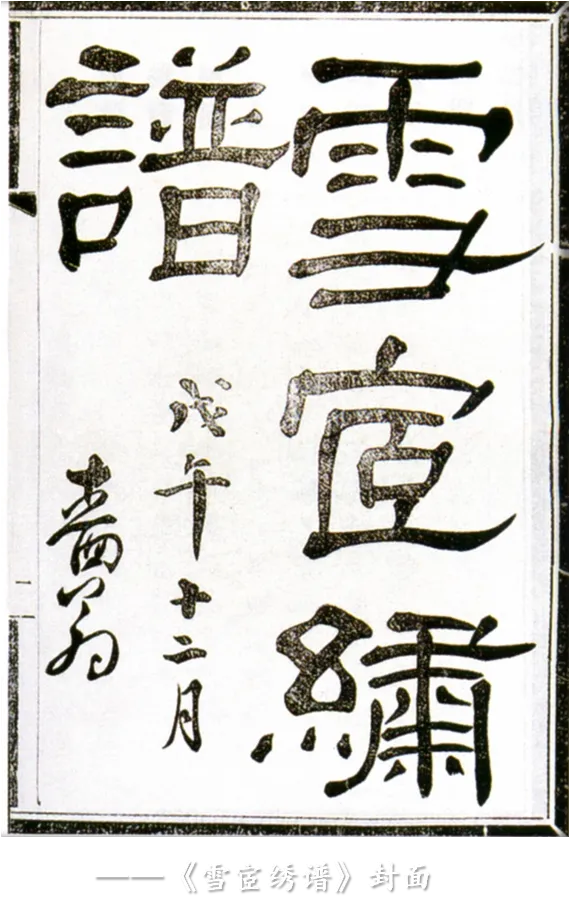 雪宧繡
譜
戊午十二月
嗇翁
一
——《雪宧绣谱》封面